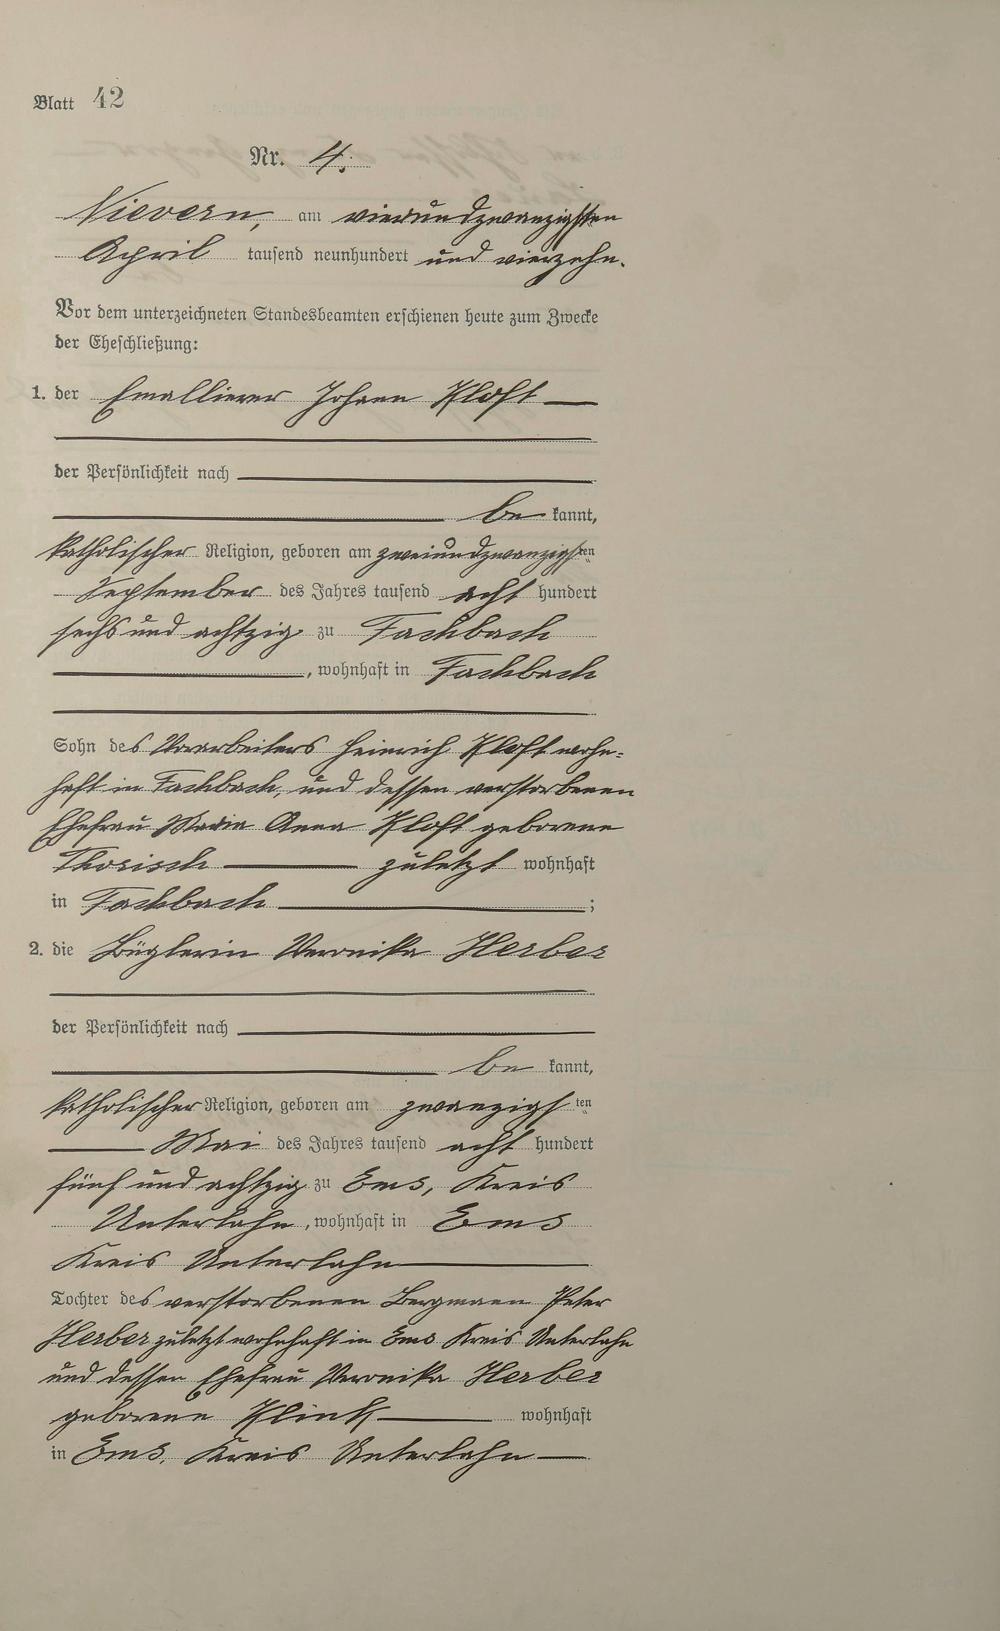 Blatt 42
Nr. 4.
Nievern, am vierundzwanzigsten
April tausend neunhundert und vierzehn.
Vor dem unterzeichneten Standesbeamten erschienen heute zum Zwecke
der Eheschließung:
1. der Emallierer Johann
der Persönlichkeit nach
be kannt,
katholischer Religion, geboren am zweiundzwanzigsten
September des Jahres tausend acht hundert
sechs und achtzig zu Fachbach
, wohnhaft in Fachbach
Sohn des Vorarbeiters Heinrich wohn-
haft in Fachbach, und dessen verstorbenen
Ehefrau Maria Anna geborene
zuletzt wohnhaft
in Fachbach ;
2. die Büglerin Veronika Herber
der Persönlichkeit nach
be kannt,
katholischer Religion, geboren am zwanzigsten
Mai des Jahres tausend acht hundert
fünf und achtzig zu Ems, Kreis
Unterlahn, wohnhaft in Ems
Kreis Unterlahn
Tochter des verstorbenen Bergmann Peter
Herber zuletzt wohnhaft in Ems Kreis Unterlahn
und dessen Ehefrau Veronika Herber
geborene wohnhaft
in Ems, Kreis Unterlahn